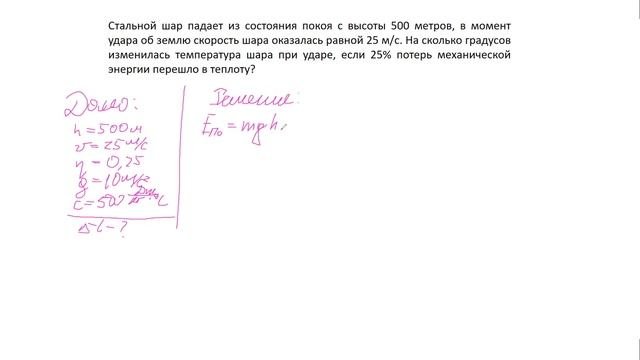 Стальной шар падает из состояния покоя с высоты 500 метров, в момент
удара об землю скорость шара оказалась равной 25 м/с. На сколько градусов
изменилась температура шара при ударе, если 25% потерь механической
энергии перешло в теплоту?
Дано:
h = 500 м
v = 25 м/с
η = 0,25
g = 10 м/с²
c = 500
Δt - ?
Решение:
Eпо = mgh